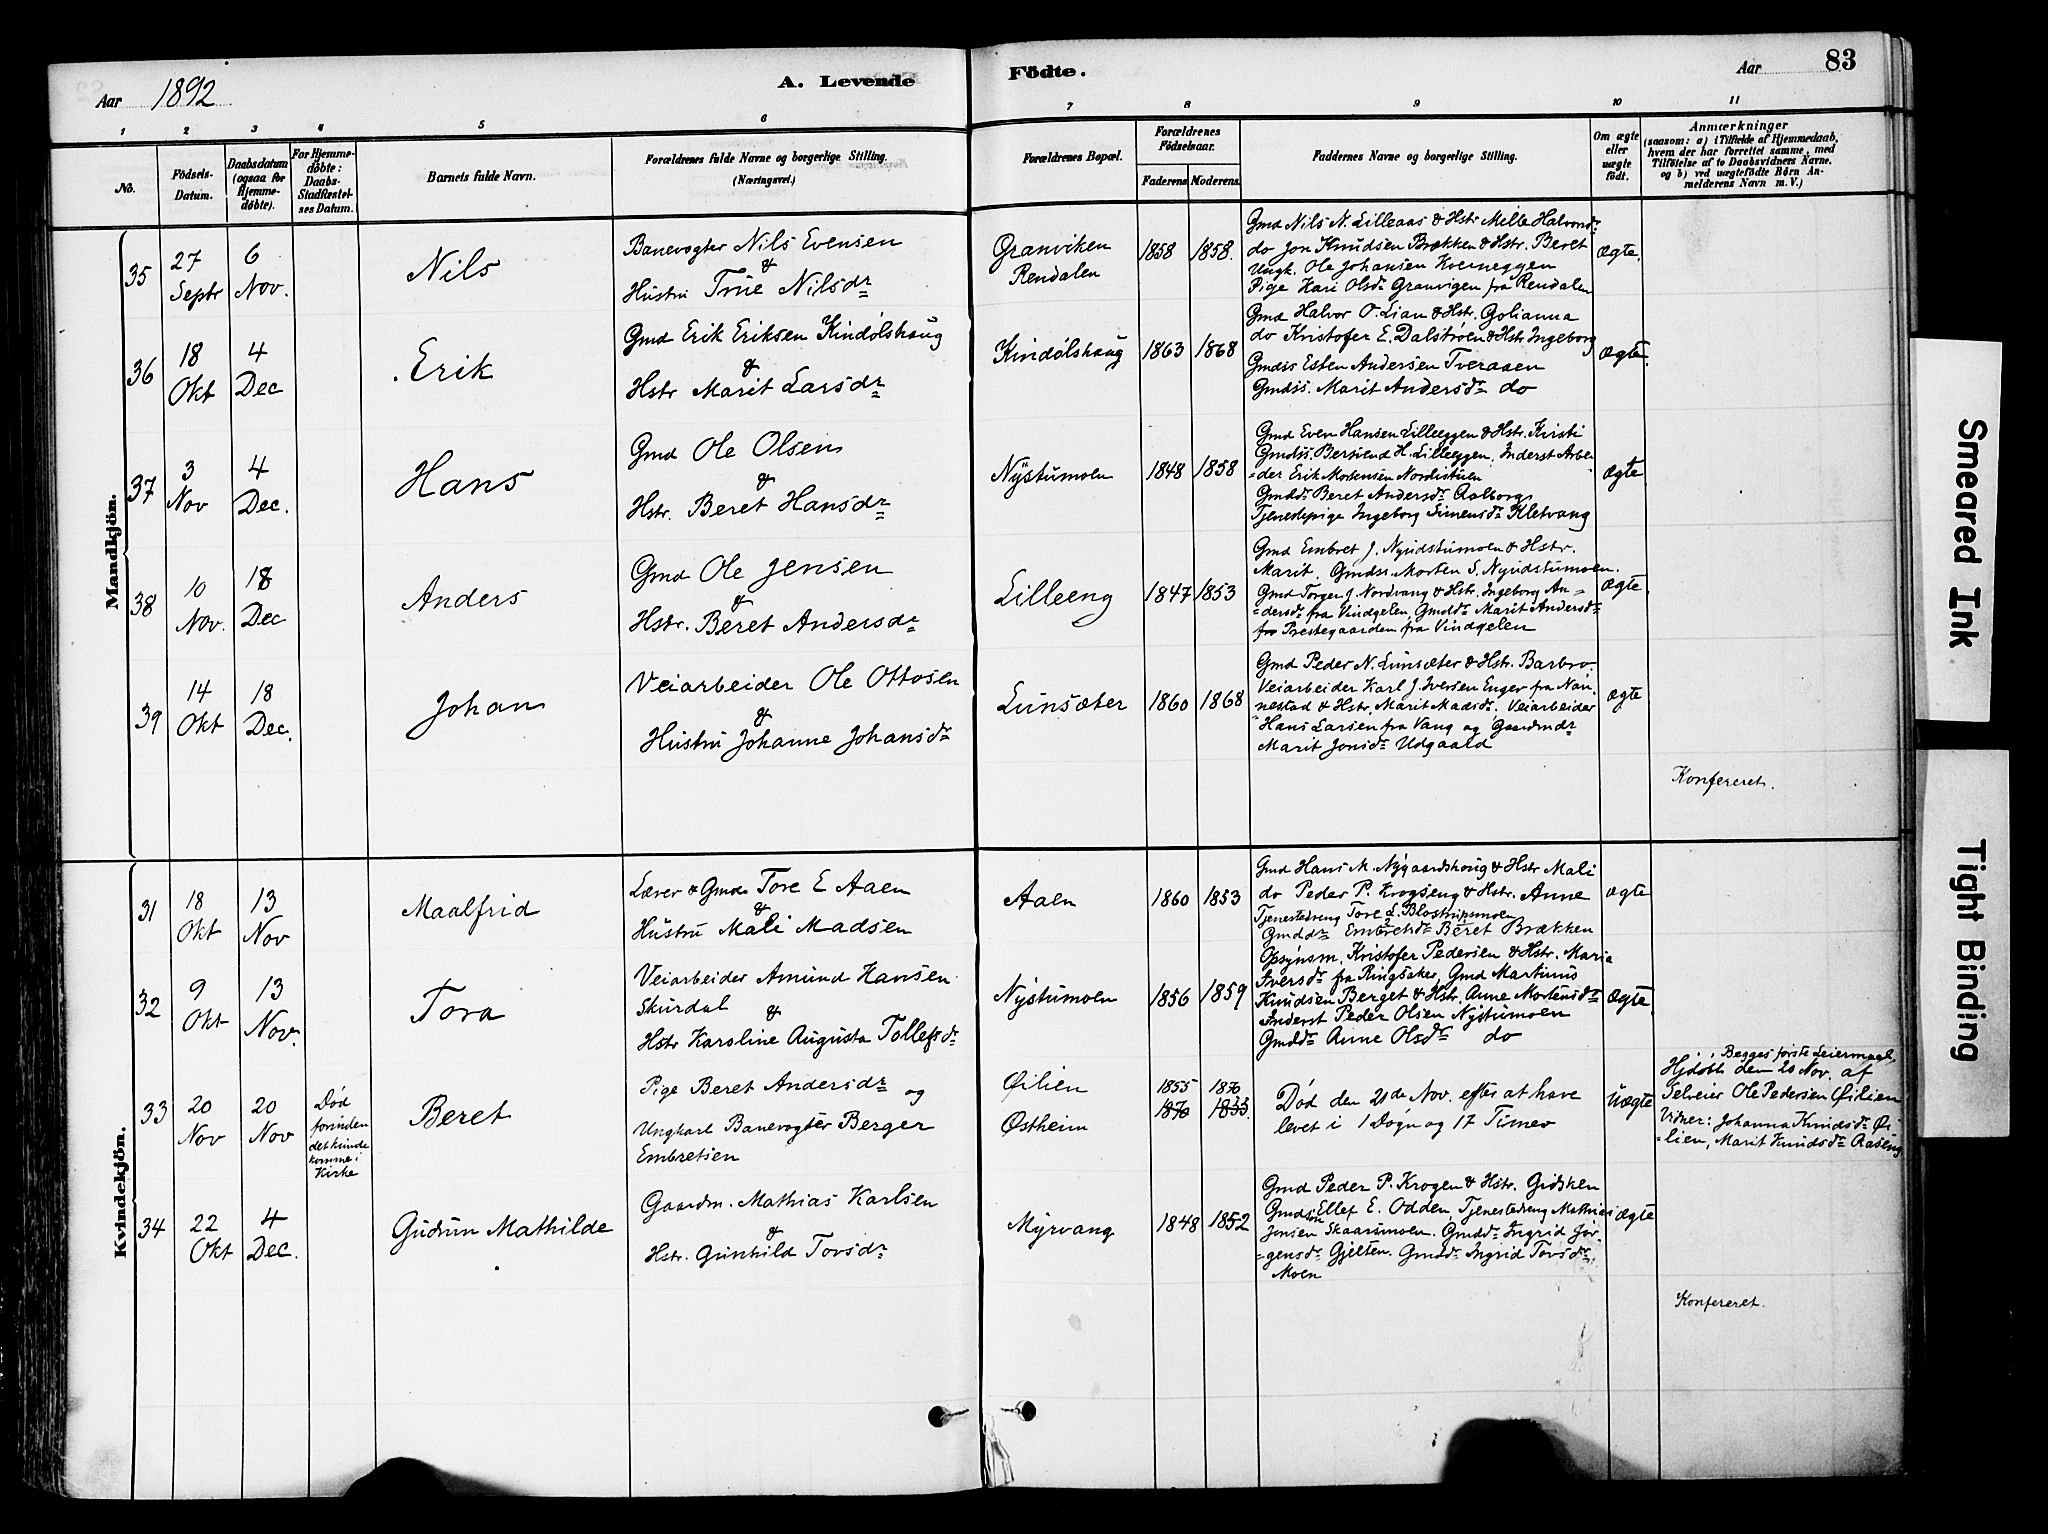 Aar 1892
A. Levende
Födte.
Aar 83
1 2 3 4 5 6 7 8 9 10 11
No.
Födsels-
Datum.
Daabsdatum
(ogsaa for
Hjemme-
døbte).
For Hjemme-
døbte:
Daabs-
Stadfæstel-
ses Datum.
Barnets fulde Navn.
Forældrenes fulde Navne og borgerlige Stilling.
(Næringsvei.)
Forældrenes Bopæl.
Forældrenes
Födselsaar.
Faderens Moderens.
Faddernes Navne og borgerlige Stilling.
Om ægte
eller
uægte
födt.
Anmærkninger
(saasom: a) i Tilfælde af Hjemmedaab,
hvem der har forrettet samme, med
Tilföielse af to Daabsvidners Navne,
og b) ved uægtefödte Börn An-
melderens Navn m. V.)
Mandkjön.
35
27
Septr
6
Nov.
Nils
Banevogter Nils Evensen
&
Hustru Trüe Nilsdr
Granviken
Rendalen
1858 1858.
Gmd Nils N. Lilleaas & Hstr Mille Halvorsdr
do Jon Knudsen Brækken & Hstr. Beret
Ungk. Ole Johansen Kverneggen
Pige Kari Olsdr Granvigen fra Rendalen
Ægte.
36
18
Okt
4
Dec
Erik
Gmd Erik Eriksen Kindølshaug
&
Hstr Marit Larsdr
Kindølshaug
1863 1868
Gmd Halvor O. Lian & Hstr. Golianna
do Kristofer E. Dalstrøen & Hstr Ingeborg
Gmdss Esten Andersen Tveraaen
Gmdss. Marit Andersdr do
Ægte.
37
3
Nov
4
Dec.
Hans
Gmd Ole Olsen
&
Hstr. Beret Hansdr
Nystumoen
1848 1858
Gmd Even Hansen Lilleeggen & Hstr. Kirsti
Gmdss Bersvend H. Lilleeggen, Inderst Arbei
=der Erik Mortensen Nordistuen
Gmdd. Beret Andersdr Aalborg
Tjenestepige Ingeborg Simensdr Kletvang
Ægte
38
10
Nov.
18
Dec
Anders
Gmd Ole Jensen
&
Hstr. Beret Andersdr
Lilleeng
1847 1853
Gmd Embret J. Nyudstumoen & Hstr.
Marit. Gmdss. Morten S. Nyudstumoen.
Gmd Torger J. Nordvang & Hstr. Ingeborg An=
=dersdr fra Vindgelen, Gmddr Marit Andersdr
fra Prestegaarden fra Vindgelen
Ægte.
39
14
Okt
18
Dec.
Johan
Veiarbeider Ole Ottosen
&
Hustru Johanne Johansdr
Lunsæter
1860 1868
Gmd Peder N. Lunsæter & Hstr. Barbro.
Veiarbeider Karl J. Iversen Enger fra Nan-
nestad & Hstr. Marit Madsdr. Veiarbeider
Hans Larsen fra Vang og Gaardmdr
Marit Jonsdr Udgaard
Ægte
Konfereret.
Kvindekjön.
31
18
Okt
13
Nov
Maalfrid
Lærer & Gmd Tore E Aaen
&
Hustru Mali Madsen
Aaen
1860 1853
Gmd Hans M. Nygaardshaug & Hstr Mali
do Peder P. Krogseng & Hstr. Anne
Tjenestedreng Tore L. Blostrupmoen
Gmddr Embretsdr Beret Brækken
Ægte
32
9
Okt
13
Nov.
Tora
Veiarbeider Amund Hansen
Skurdal
&
Hstr Karoline Augusta Tollefsdr
Nystumoen
1856 1859
Opsynsm. Kristofer Pedersen & Hstr. Maria
Iversdr fra Ringsaker, Gmd Martinus
Knudsen Berget & Hstr. Anne Mortensdr
Inderst Peder Olsen Nystumoen
Gmddr Anne Olsdr do
Ægte
33
20
Nov
20
Nov
Død
forinden
det kunde
komme i
Kirke
Beret
Pige Beret Andersdr og
Ungkarl Banevogter Berger
Embretsen
Øilien
Østheim
1855 1870
1870 1855
Død den 21de Nov. efter at have
levet i 1 Døgn og 17 Timer
Uægte
Begges første Leiermaal,
Hjdøbt den 20 Nov. af
Selveier Ole Pedersen Øilien
Vidner: Johanna Knudsdr Øi
=lien, Marit Knudsdr Aaseng
34
22
Okt
4
Dec.
Gudrun Mathilde
Gaardm. Mathias Karlsen
&
Hstr. Gunhild Torsdr
Myrvang
1848 1852
Gmd Peder P. Krogen & Hstr. Gidsken
Gmdsøn Ellef E. Odden, Tjenestedreng Mathias
Jensen Skaarsmoen. Gmddr Ingrid Jør-
=gensdr Gjelten. Gmddr Ingrid Torsdr
Moen
Ægte
Konfereret.
Smeared Ink
Tight Binding